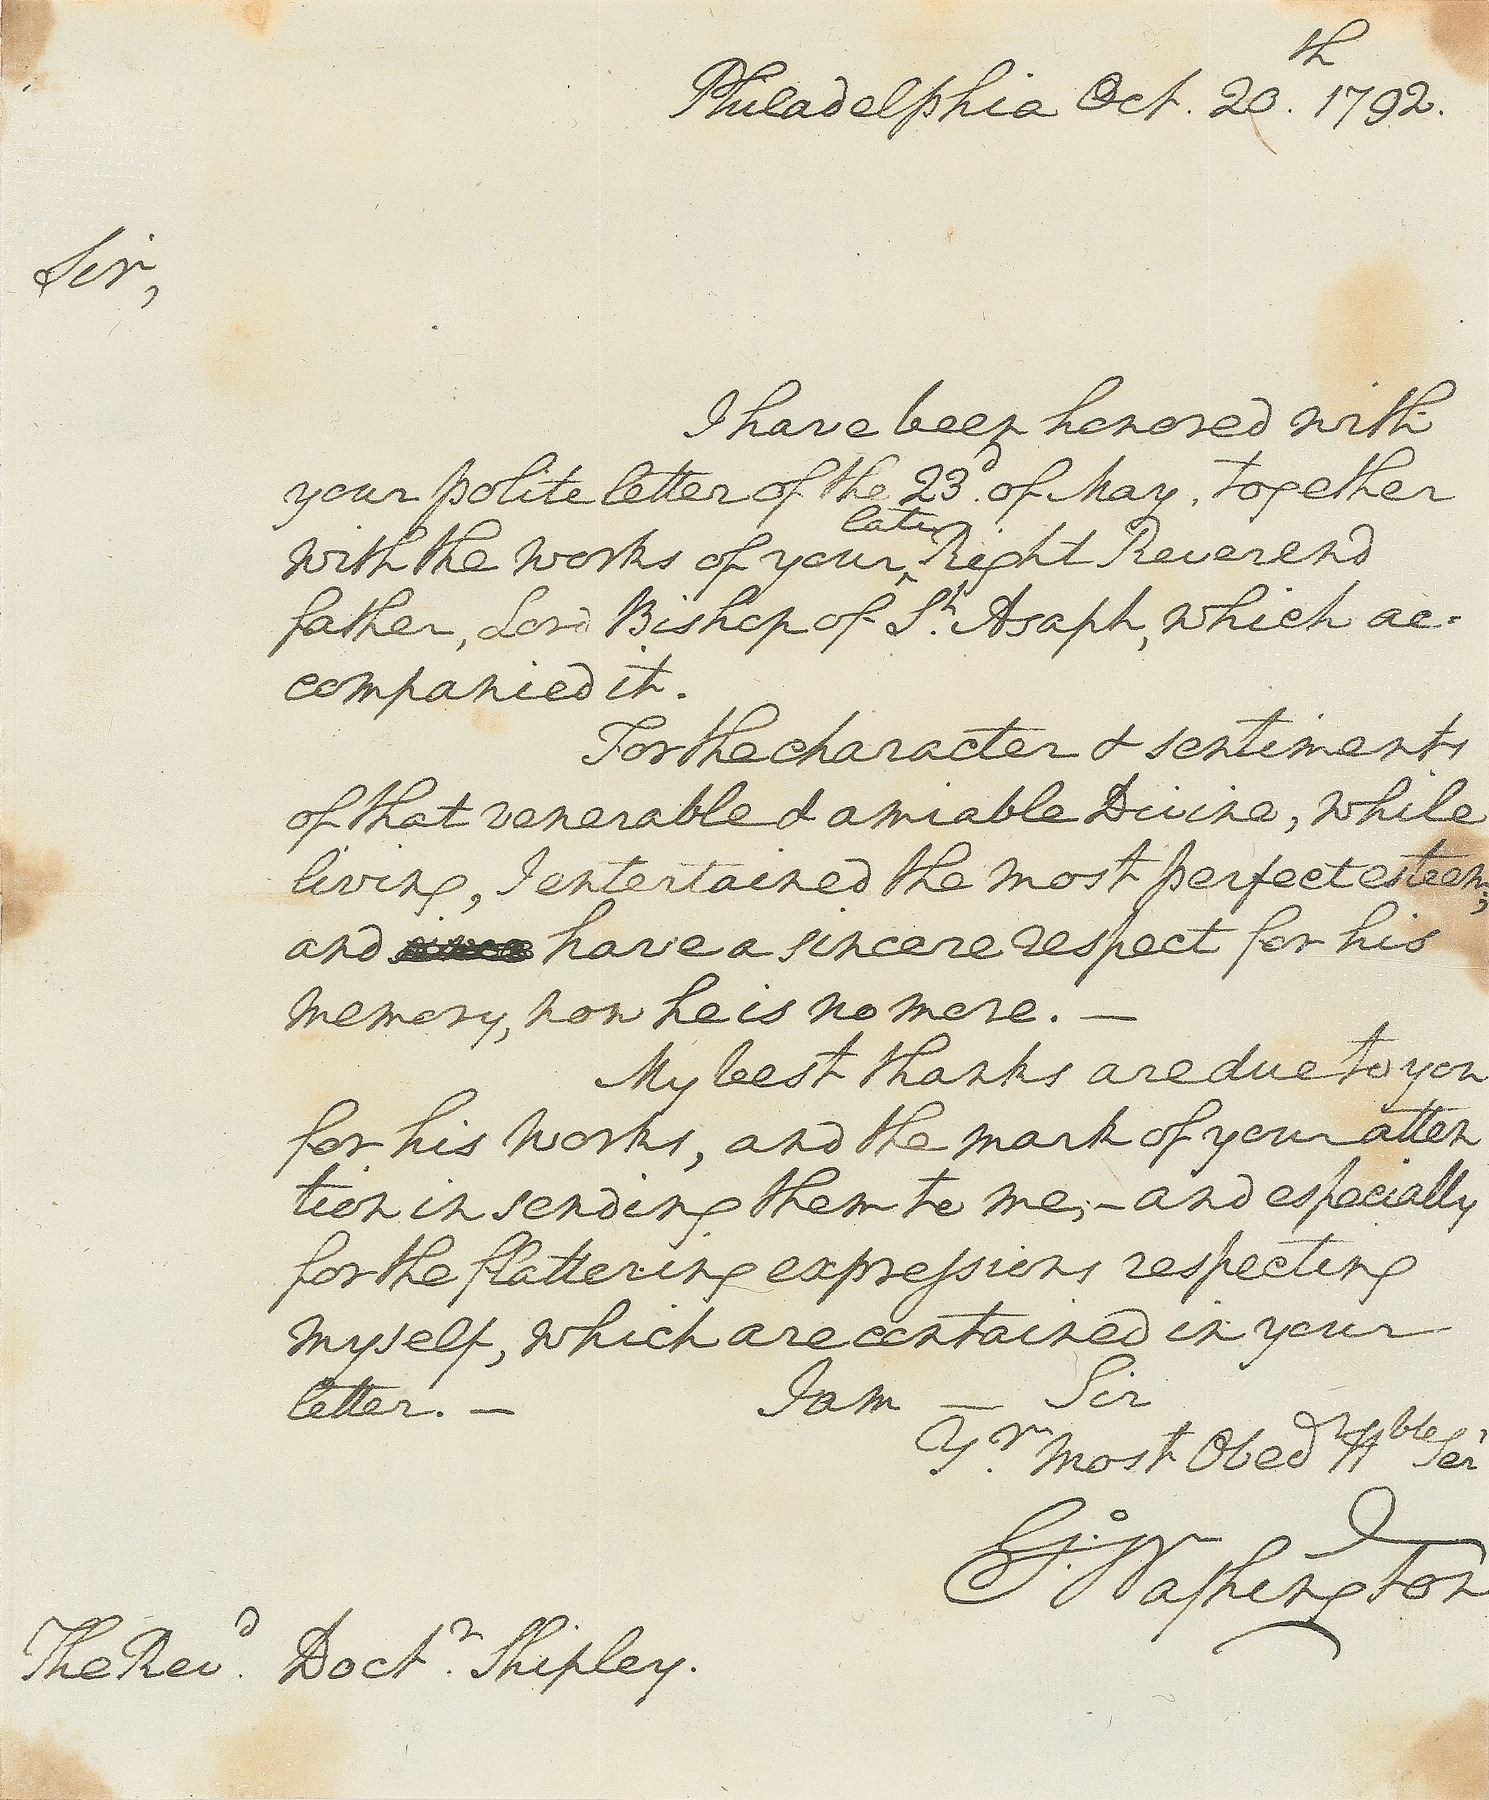 Philadelphia Oct. 20th. 1792.
Sir,
I have been honored with
your polite letter of the 23d. of May, together
with the works of your ^late Right Reverend
father, Lord Bishop of St. Asaph, which ac-
companied it.
For the character & sentiments
of that venerable & amiable Divine, while
living, I entertained the most perfect esteem;
and have a sincere respect for his
memory, now he is no more. —
My best thanks are due to you
for his works, and the mark of your atten
tion in sending them to me;—and especially
for the flattering expressions respecting
myself, which are contained in your
letter. — I am — Sir
Yr. most Obedt Hble Sert
Go: Washington
The Revd. Doctr. Shipley.